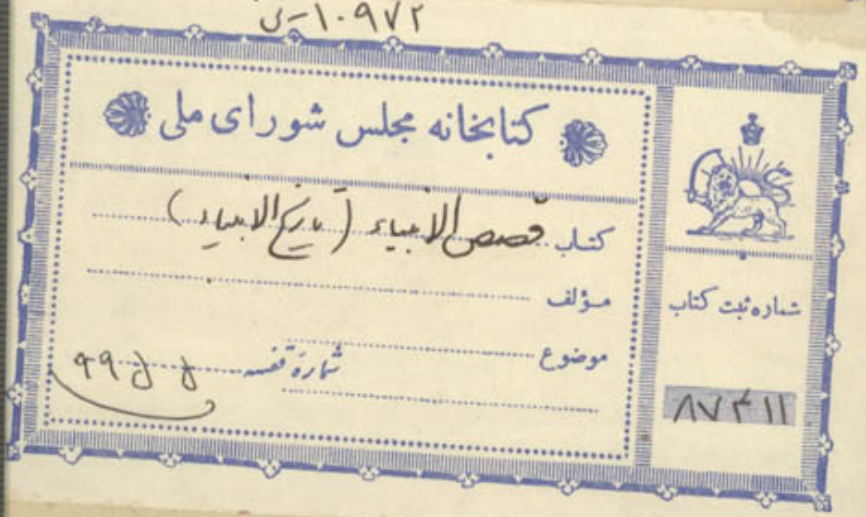 ۱۰۹۷۲-ی
کتابخانه مجلس شورای ملی
کتاب قصص الأنبیاء (تاریخ الانبیاء)
مؤلف
موضوع
شماره قفسه
شماره ثبت کتاب